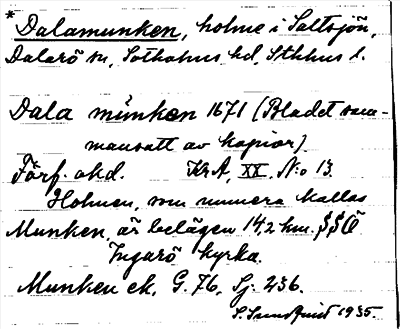 *Dalamunken, holme i Saltsjön,
Dalarö sn, Sotholms hd, Sthlms l.
Dala münken 1671 (Bladet sam-
mansatt av kopior)
Förf. okd. KrA, XX, N:o 13.
Holmen, som numera kallas
Munken, är belägen 14,2 km. SSÖ
Ingarö kyrka.
Munken ek. G. 76, Sj. 236.
S. Sundquist 1935.